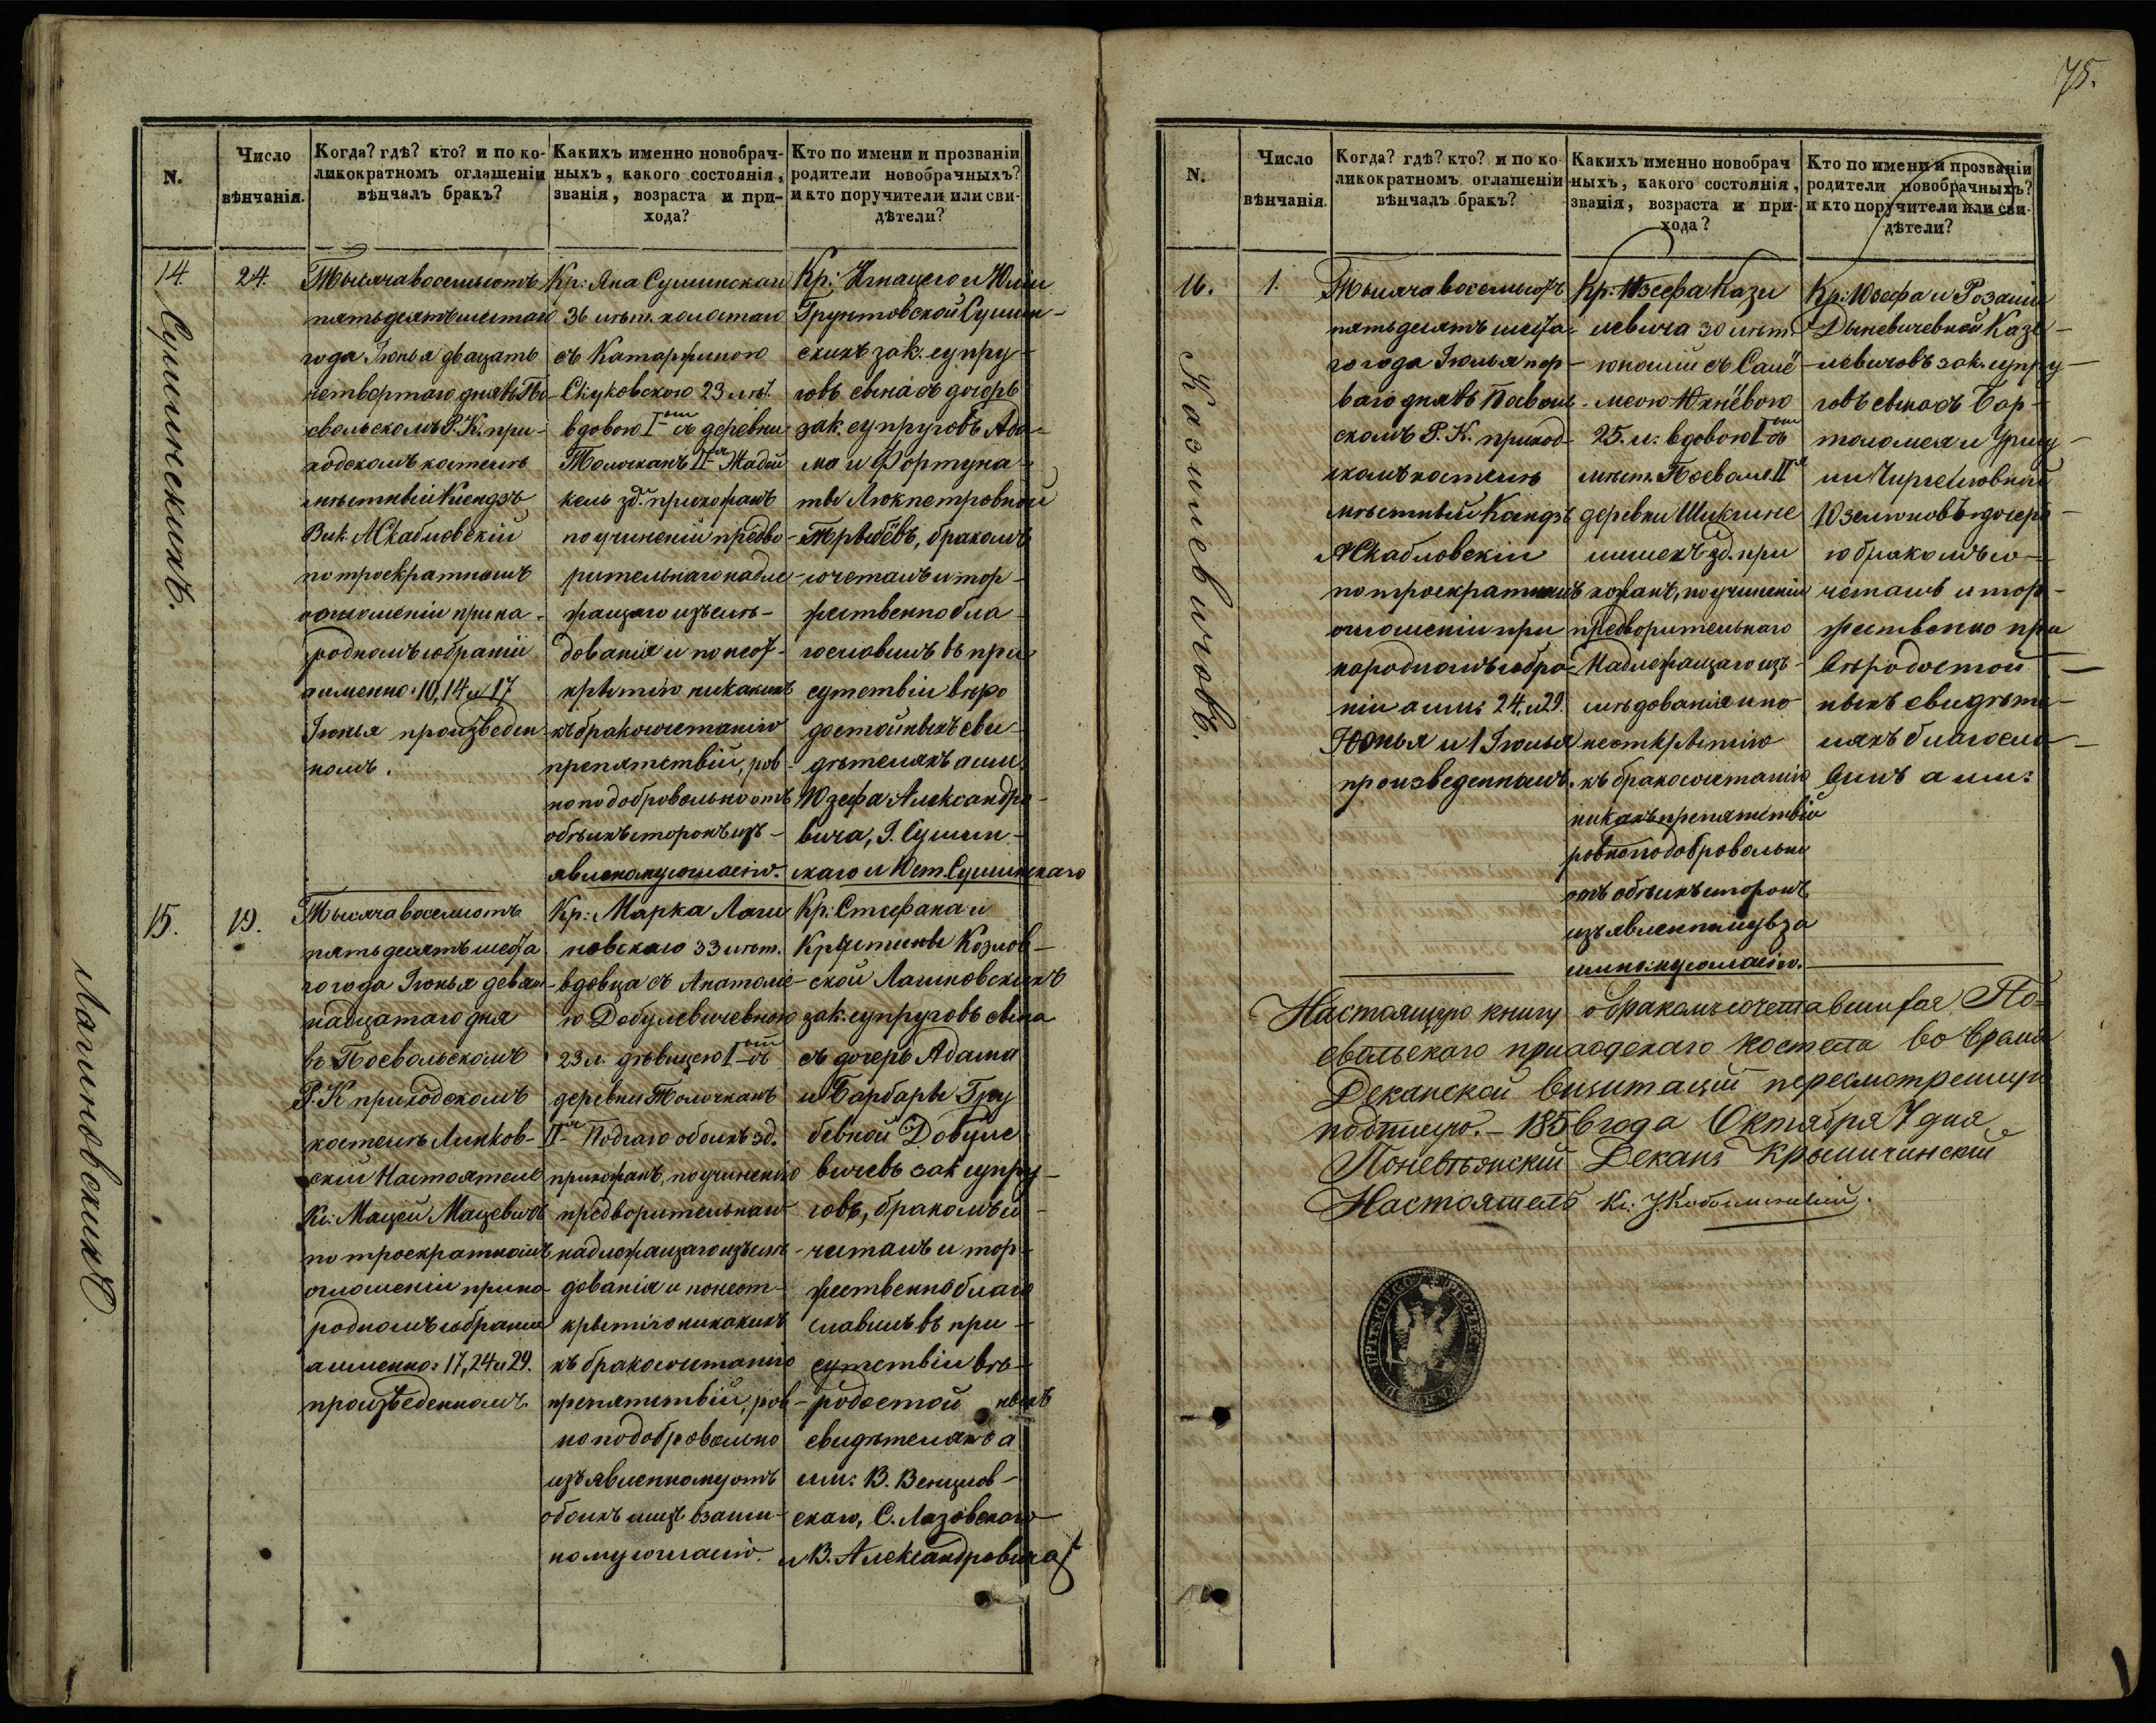 75.
N.
Число
вѣнчанія.
Когда? гдѣ? кто? и по ко-
ликократномъ оглашеніи
вѣнчалъ бракъ?
Какихъ именно новобрач-
ныхъ, какого состоянія,
званія, возраста и при-
хода?
Кто по имени и прозванію
родители новобрачныхъ?
и кто поручители или сви-
дѣтели?
14.
Сушинскихъ.
24.
Тысяча восемьсотъ
пятьдесятъ шестаго
года Іюнья двацать
четвертаго дня въ По-
свольскомъ Р. К. при-
ходскомъ костелѣ
мѣстный Ксендзъ
Вик. А Скабловскій
по троекратномъ
оглошеніи прина-
родномъ собраніи
а именно: 10, 14 и 17
Іюнья произведен-
номъ.
Кр: Яна Сушинскаго
36 лѣт. холостаго
съ Катаржиною
Скуковскою 23 лѣт.
вдовою I съ деревни
Толочканъ II Жадей
кель зд. прихожанъ
по учиненіи предво-
рительнаго надле-
жащаго изъслѣ-
дованія и понеот-
крытію никакихъ
къ бракосочетанію
препятствій, рав-
но по добровольно отъ
обѣихъ сторонъ изъ-
явленному согласію.
Кр: Игнацего и Юліи
Грунтовской Сушин-
скихъ зак. супру-
говъ сына съ дочерь
зак. супруговъ Ада-
ма и Фортуна-
ты Люкпетровной
Трыбёвъ, бракомъ
сочеталъ и тор-
жественно бла-
гословилъ въ при
сутствіи вѣро
достойныхъ сви-
дѣтеляхъ а им:
Юзефа Александро-
вича, І. Сушин-
скаго и Юст. Сушинскаго
15.
Лагиновскихъ.
19.
Тысяча восемсотъ
пятьдесятъ шеста
го года Іюнья девят-
надцатаго дня
въ Посвольскомъ
Р. К приходскомъ
костелѣ Линков-
скій Настоятель
Кс: Мацей Мацевичъ
по троекратномъ
оглошеніи прина-
родномъ собраніи
а именно: 17, 24 и 29.
произведенномъ
Кр: Марка Лаги
новскаго 33 лѣт.
вдовца съ Анатолiе-
ю Довулевичевною
23 л. дѣвицею I съ
деревни Толочканъ
II Подгаю обоихъ зд.
прихожанъ, по учиненію
предворительнаго
надлежащаго изъслѣ-
дованія и понеот-
крытію никакихъ
къ бракосочетанію
препятствій, рав-
но по добровольно
изъявленному отъ
обоихъ лицъ взаим-
ному согласію.
Кр: Стефана и
Крыстины Козлов-
ской Лагиновскихъ
зак. супруговъ сына
съ дочерь Адама
и Барбары Гру
бевной Довуле
вичевъ зак супру-
говъ, бракомъ со-
читалъ и тор-
жественно благо
славилъ въ при-
сутствіи вѣ-
родостойныхъ
свидѣтеляхъ а
им: В. Венцлов-
скаго, С. Лазовскаго
и В. Александровича
N.
Число
вѣнчанія.
Когда? гдѣ? кто? и по ко
ликократномъ оглашеніи
вѣнчалъ бракъ?
Какихъ именно новобрач
ныхъ, какого состоянія,
званія, возраста и при-
хода?
Кто по имени и прозваніи
родители новобрачныхъ?
и кто поручители или сви-
дѣтели?
16.
Казилевичовъ.
1.
Тысяча восемьсотъ
пятьдесятъ шеста-
го года Іюлья пер-
ваго дня въ Посволь-
скомъ Р. К. приход-
скомъ костелѣ
мѣстный Ксендзъ
А Скабловскій
по троекратномъ
оглошеніи при
народномъ собра-
ніи а им: 24, и 29.
Юонья и 1 Іюлья
произведенномъ.
Кр: Юзефа Кази
левича 30 лѣт
юноши съ Сале
меою Юхнёвою
25. л: вдовою I съ
мѣст. Посволя II
деревни Шикшне
лишекъ зд. при
хожанъ, по учиненіи
предворительнаго
Надлежащаго изъ-
слѣдованія и по
неоткрытію
къ бракосочетанію
никакъ препятствій
равно по добровольно
отъ обѣихъ сторонъ
изъявленному вза
имному согласію.
Кр: Юзефа и Розаліи
Дыневичевной Кази-
левичовъ зак. супру-
говъ сына съ Бар-
толомея и Уршу
ли Чиргелювной
Юзелюновъ дочерь-
ю бракомъ со-
четалъ и тор-
жественно при
Вѣродостой-
ныхъ свидѣте-
ляхъ благосло-
вилъ а им:
Настоящую книгу о бракомъ сочетавшихся По-
свольскаго приходскаго костела во время
Деканской визитаціи пересмотренную
подпишую. – 1856 года Октября 7 дня
Поневѣжскій Деканъ Крымичинскій
Настоятель Кс: